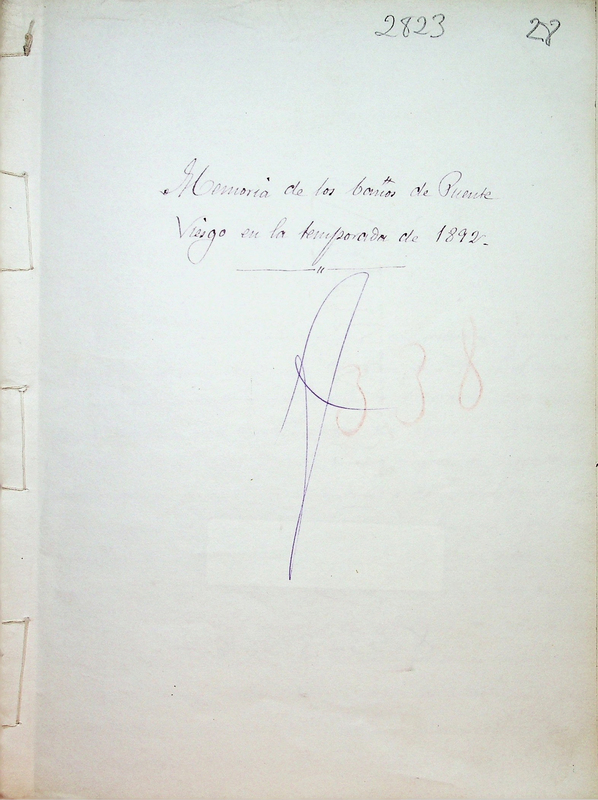 2823 28
Memoria de los baños de Puente
Viesgo en la temporada de 1892.
338